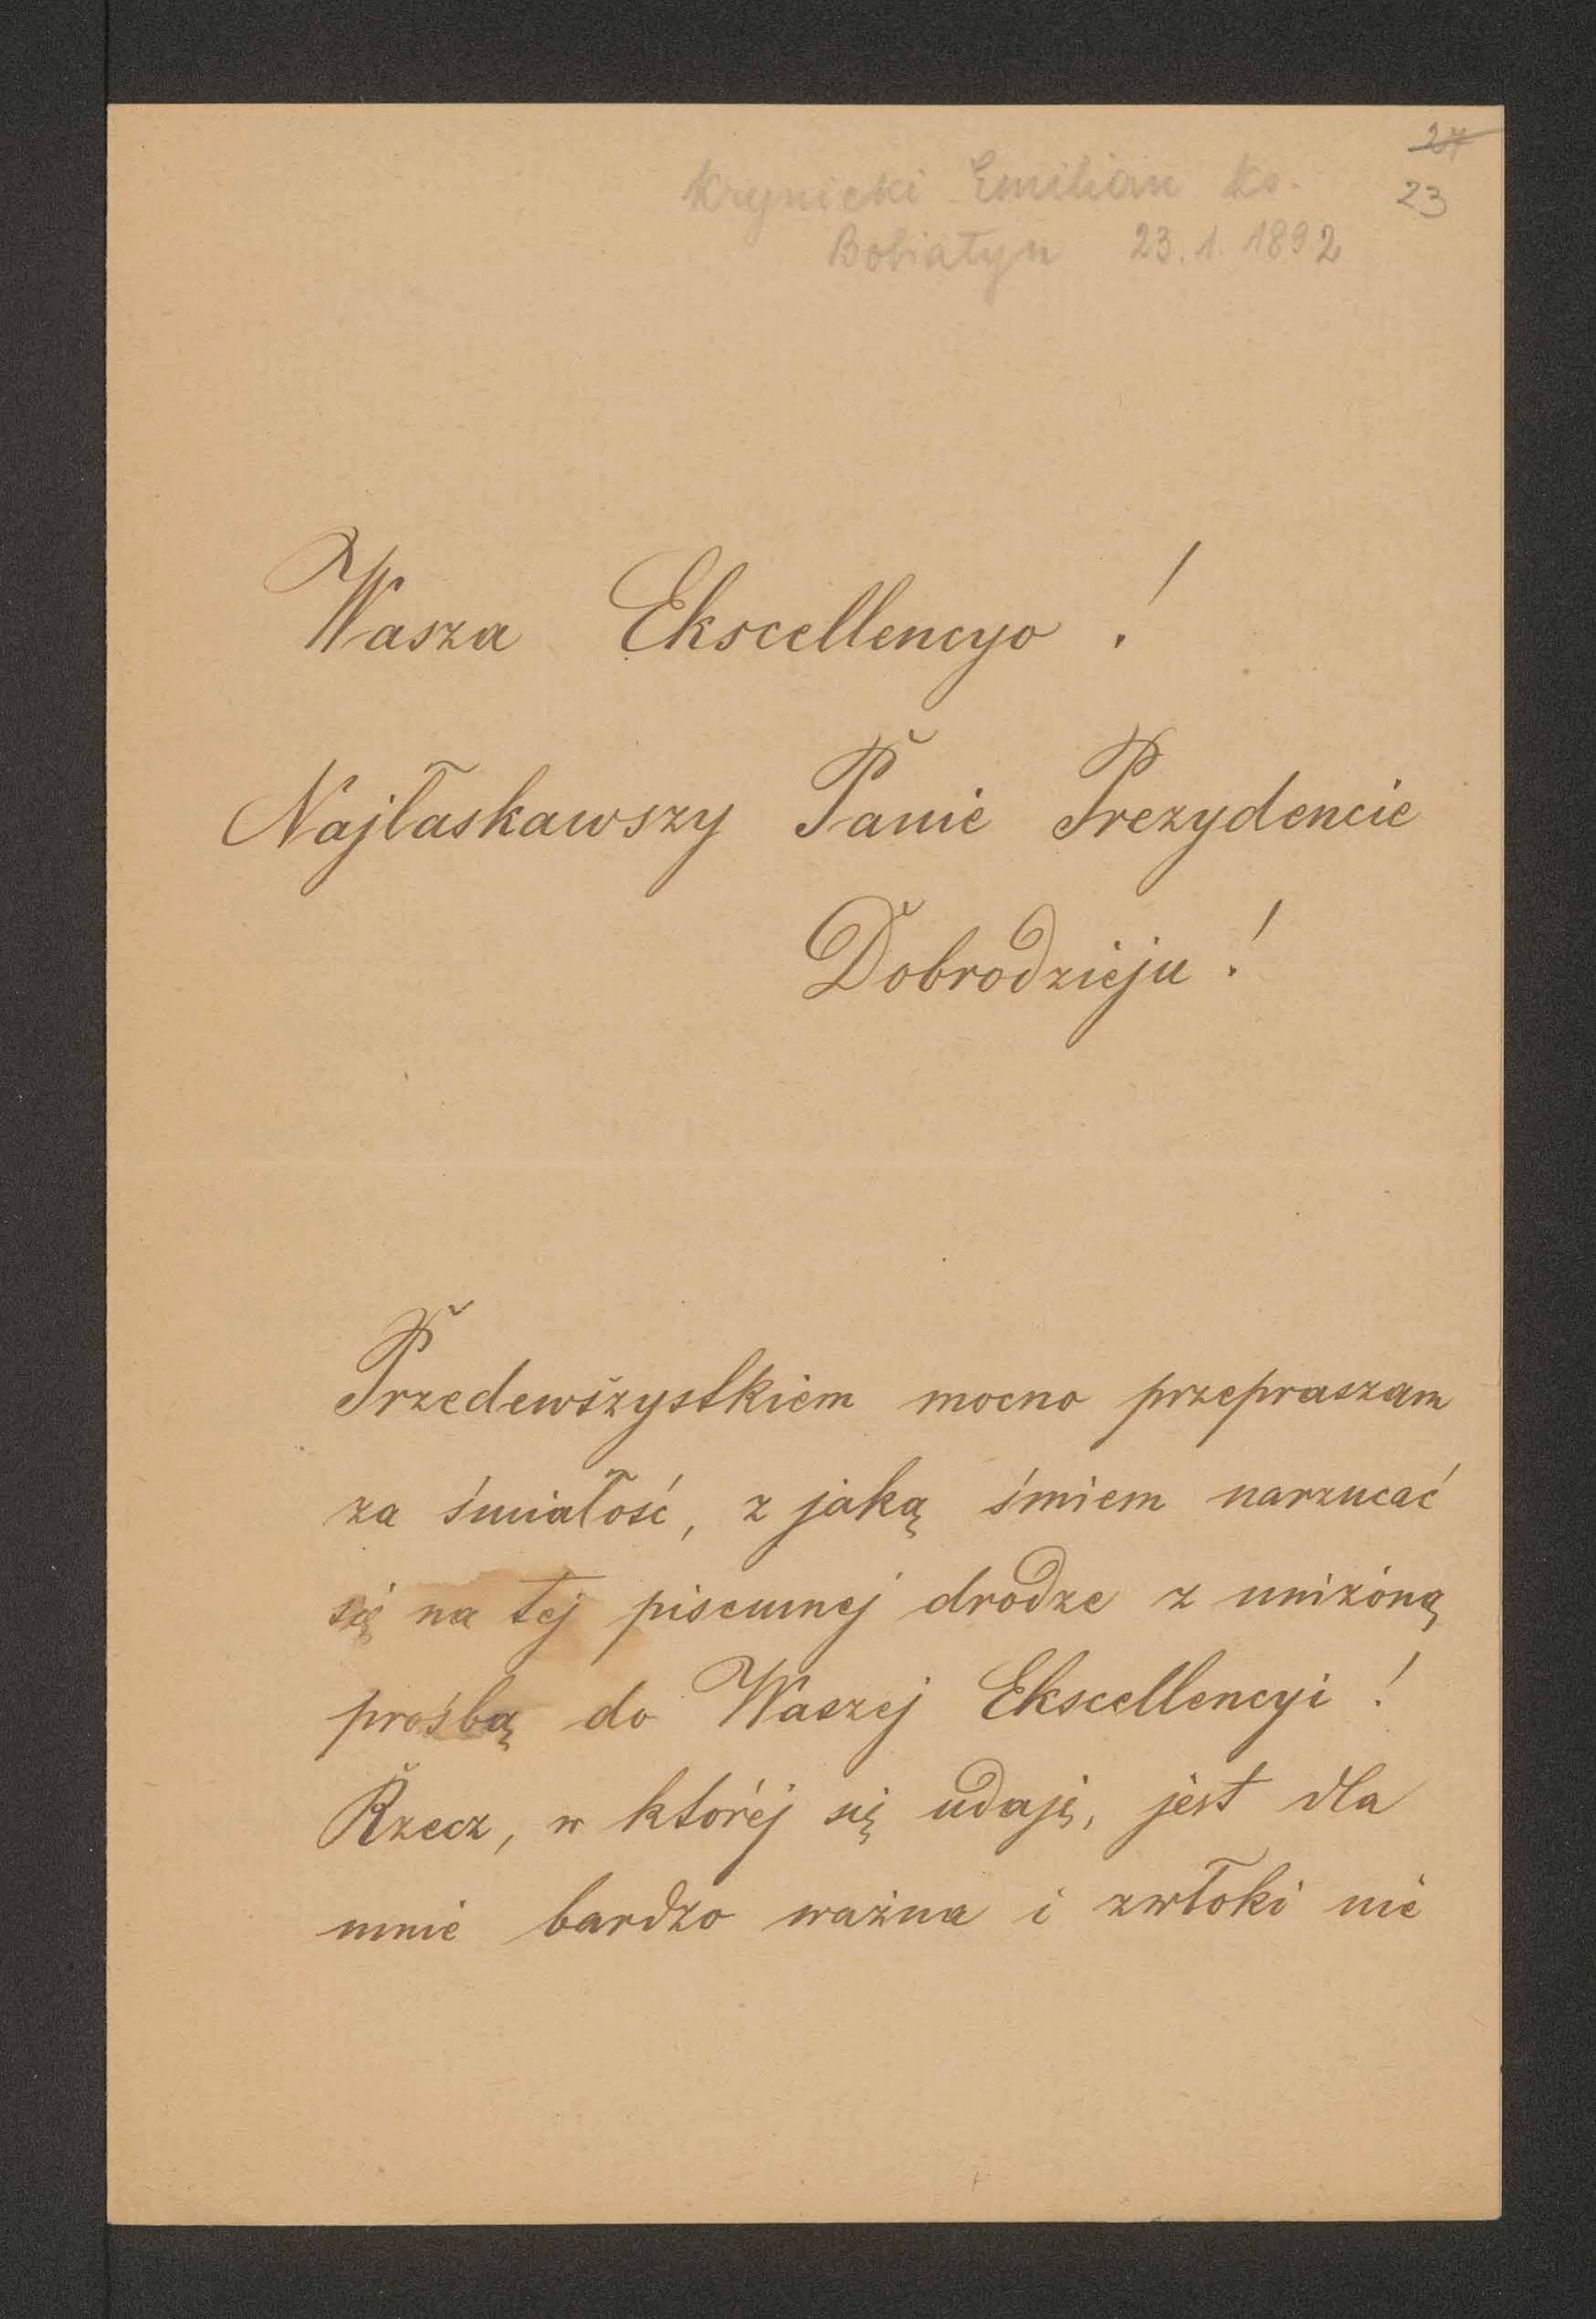 27
Krynicki Emilian ks.
23
Bobiatyn 23.1.1892
Wasza Ekscellencyo!
Najłaskawszy Panie Prezydencie
Dobrodzieju!
Przedewszystkiem mocno przepraszam
za śmiałość, z jaką śmiem narzucać
się na tej pisemnej drodze z uniżoną
prośbą do Waszej Ekscellencyi!
Rzecz, w któréj się udaję, jest dla
mnie bardzo ważna i zwłoki nie